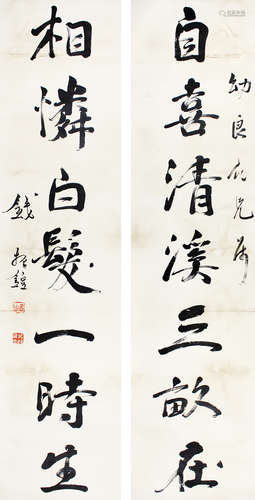 自喜清溪三畝在
幼良仁兄屬
相憐白髮一時生
錢振鍠